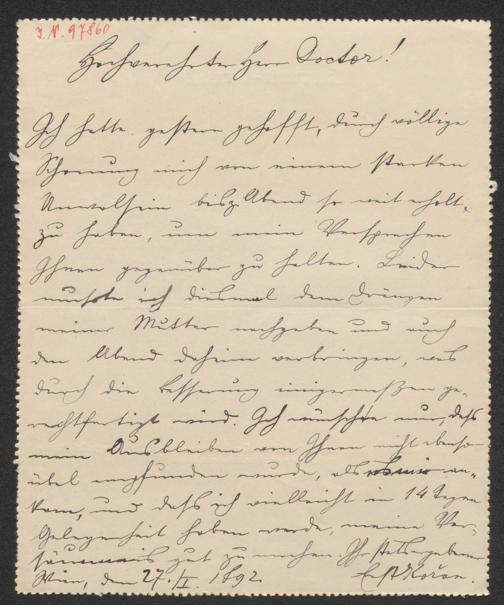 J. N. 97860
Hochverehrter Herr Doctor!
Ich hatte gestern gehofft, durch völlige
Schonung mich von einem starken
Unwolsein bis z. Abend so weit erholt
zu haben, um mein Versprechen
Ihnen gegenüber zu halten. Leider
musste ich diesmal dem Drängen
meiner Mutter nachgeben und auch
den Abend daheim verbringen, was
durch die Besserung einigermaßen ge-
rechtfertigt wird. Ich wünschte nur, dass
mein Ausbleiben von Ihnen nicht ebenso
übel empfunden wurde, als
und dass ich vielleicht in 14 Tagen
Gelegenheit haben werde, meine Ver-
säumnis gut zu machen. Ihr stets ergebener
Wien, den 27./I 1892.